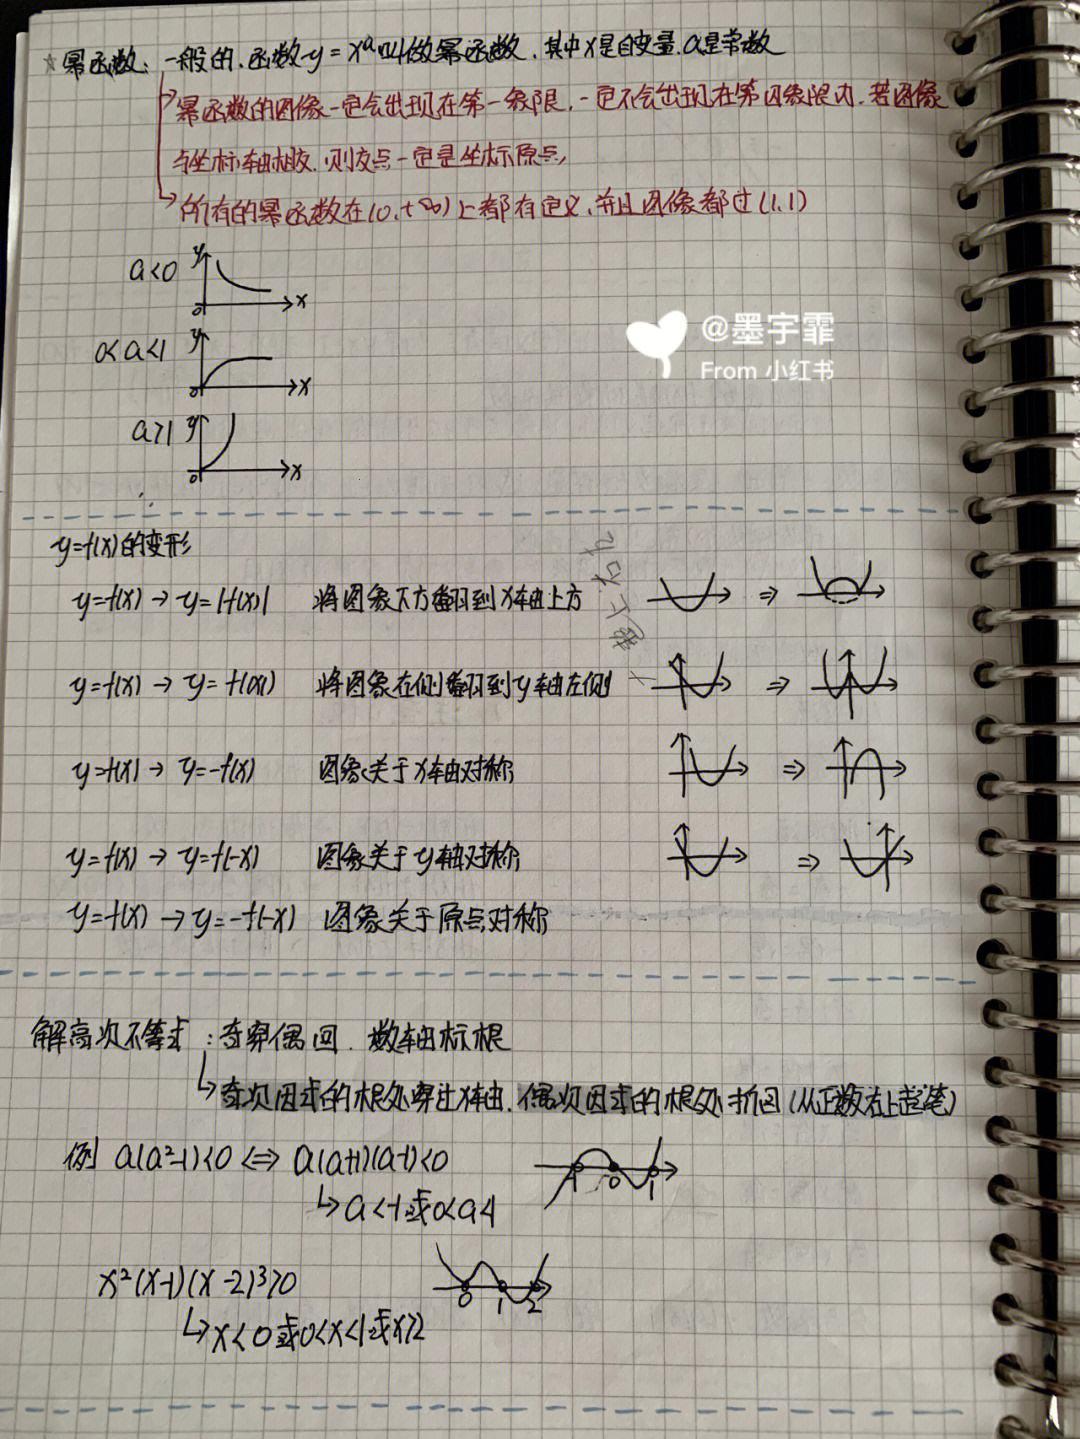 ☆幂函数：一般的，函数y=xᵃ叫做幂函数，其中x是自变量，a是常数
幂函数的图像一定会出现在第一象限，一定不会出现在第四象限内，若图像
与坐标轴相交，则交点一定是坐标原点
所有的幂函数在(0,+∞)上都有定义，并且图像都过(1,1)
a<0 y 0 x
@墨宇霏
0<a<1 y 0 x
From 小红书
a>1 y 0 x
y=f(x)的变形
y=f(x) → y=|f(x)| 将图象下方翻到x轴上方 ⇒
y=f(x) → y=f(|x|) 将图象右侧翻到y轴左侧 ⇒
y=f(x) → y=-f(x) 图象关于x轴对称 ⇒
y=f(x) → y=f(-x) 图象关于y轴对称 ⇒
y=f(x) → y=-f(-x) 图象关于原点对称
解高次不等式：奇穿偶回，数轴标根
奇次因式的根处穿过x轴，偶次因式的根处折回(从正数右上起笔)
例 a(a²-1)<0 ⇔ a(a+1)(a-1)<0 -1 0 1
a<-1或0<a<1
x²(x-1)(x-2)³>0 0 1 2
x<0或0<x<1或x>2